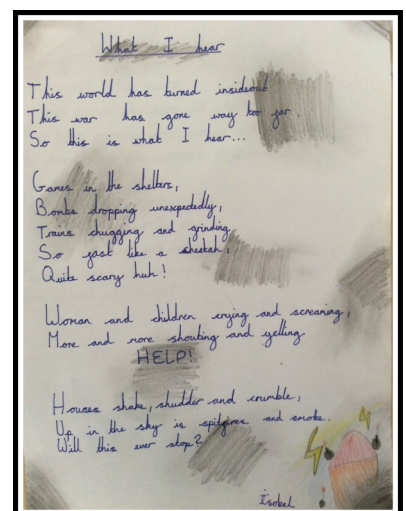 What I hear
This world has turned insideout
This war has gone way too far.
So this is what I hear...
Games in the shelters,
Bombs dropping unexpectedly,
Trains chugging and grinding
So fast like a cheetah,
Quite scary huh!
Woman and children crying and screaming,
More and more shouting and yelling
HELP!
Houses shake, shudder and crumble,
Up in the sky is spitfires and smoke.
Will this ever stop?
Isobel